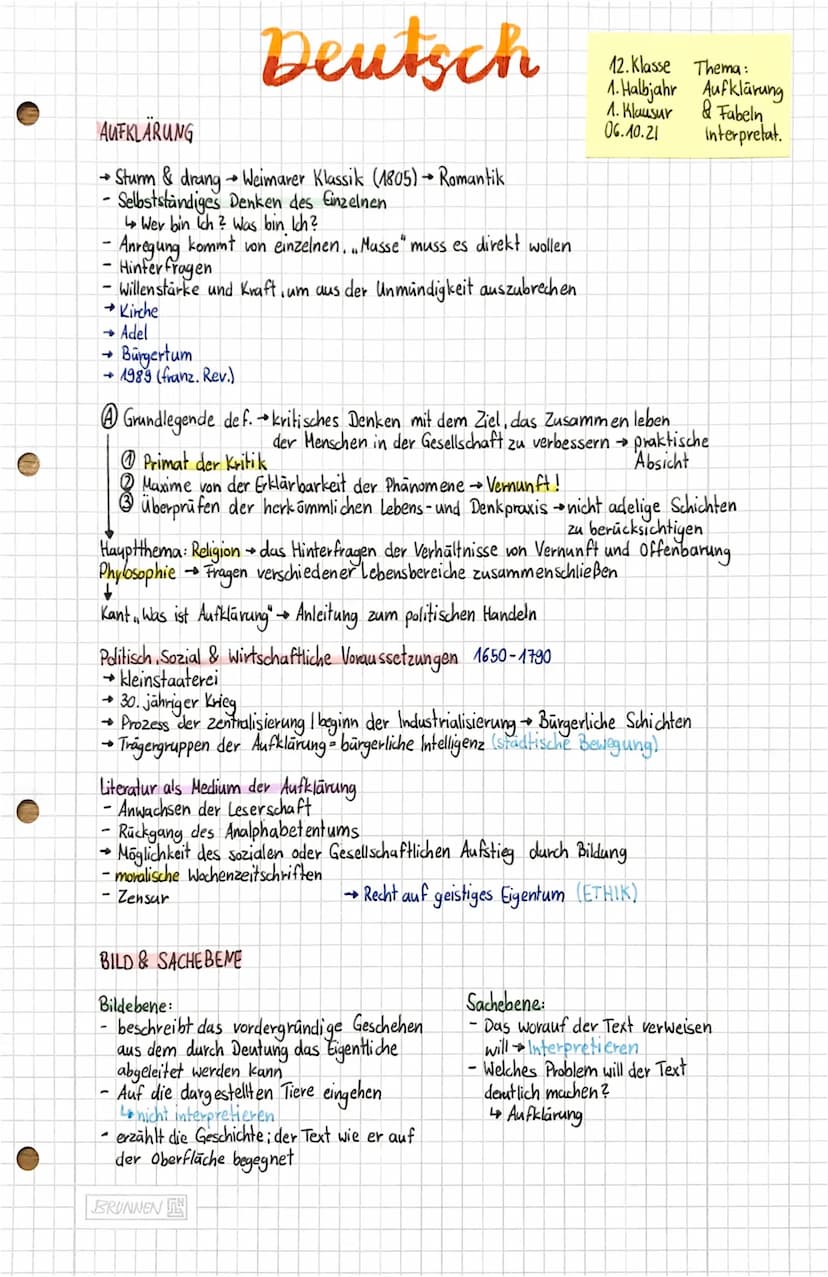 Deutsch
12. Klasse
1. Halbjahr
1. Klausur
06.10.21
Thema:
Aufklärung
& Fabeln
interpretat.
AUFKLÄRUNG
→ Sturm & drang → Weimarer Klassik (1805) → Romantik
- Selbstständiges Denken des Einzelnen
↳ Wer bin Ich? Was bin Ich?
- Anregung kommt von einzelnen, „Masse" muss es direkt wollen
- Hinterfragen
- Willenstärke und Kraft, um aus der Unmündigkeit auszubrechen
→ Kirche
→ Adel
→ Bürgertum
→ 1989 (franz. Rev.)
Ⓐ Grundlegende def. → kritisches Denken mit dem Ziel, das Zusammen leben
der Menschen in der Gesellschaft zu verbessern → praktische
Absicht
① Primat der Kritik
② Maxime von der Erklärbarkeit der Phänomene → Vernunft!
③ Überprüfen der herkömmlichen Lebens- und Denkpraxis → nicht adelige Schichten
zu berücksichtigen
Hauptthema: Religion → das Hinterfragen der Verhältnisse von Vernunft und Offenbarung
Phylosophie → Fragen verschiedener Lebensbereiche zusammenschließen
↓
Kant „Was ist Aufklärung" → Anleitung zum politischen Handeln
Politisch, Sozial & Wirtschaftliche Voraussetzungen 1650-1790
→ kleinstaaterei
→ 30. jähriger Krieg
→ Prozess der zentralisierung / beginn der Industrialisierung → Bürgerliche Schichten
→ Trägergruppen der Aufklärung = bürgerliche Intelligenz (städtische Bewegung)
Literatur als Medium der Aufklärung
- Anwachsen der Leserschaft
- Rückgang des Analphabetentums
→ Möglichkeit des sozialen oder Gesellschaftlichen Aufstieg durch Bildung
- moralische Wochenzeitschriften
- Zensar → Recht auf geistiges Eigentum (ETHIK)
BILD & SACHEBENE
Bildebene:
- beschreibt das vordergründige Geschehen
aus dem durch Deutung das Eigentliche
abgeleitet werden kann
- Auf die dargestellten Tiere eingehen
↳ nicht interpretieren
- erzählt die Geschichte; der Text wie er auf
der Oberfläche begegnet
Sachebene:
- Das worauf der Text verweisen
will → Interpretieren
- Welches Problem will der Text
deutlich machen?
↳ Aufklärung
BRUNNEN